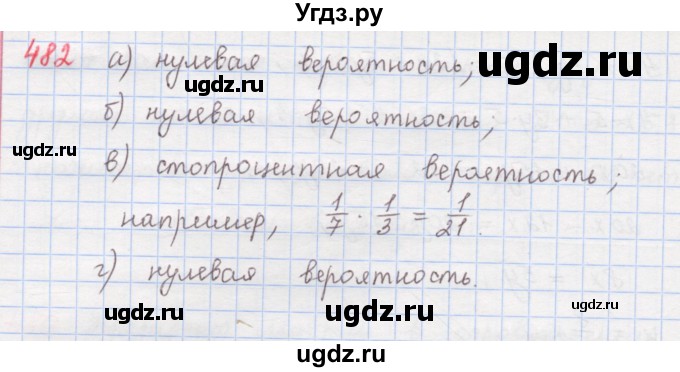 Угдз.ру
482 а) нулевая вероятность; ugdz.ru
ugdz.ru
б) нулевая вероятность;
ugdz.ru
в) стопроцитная вероятность;
ugdz.ru
например, 1/7 · 1/3 = 1/21.
г) нулевая вероятность.
ugdz.ru ugdz.ru ugdz.ru
ugdz.ru